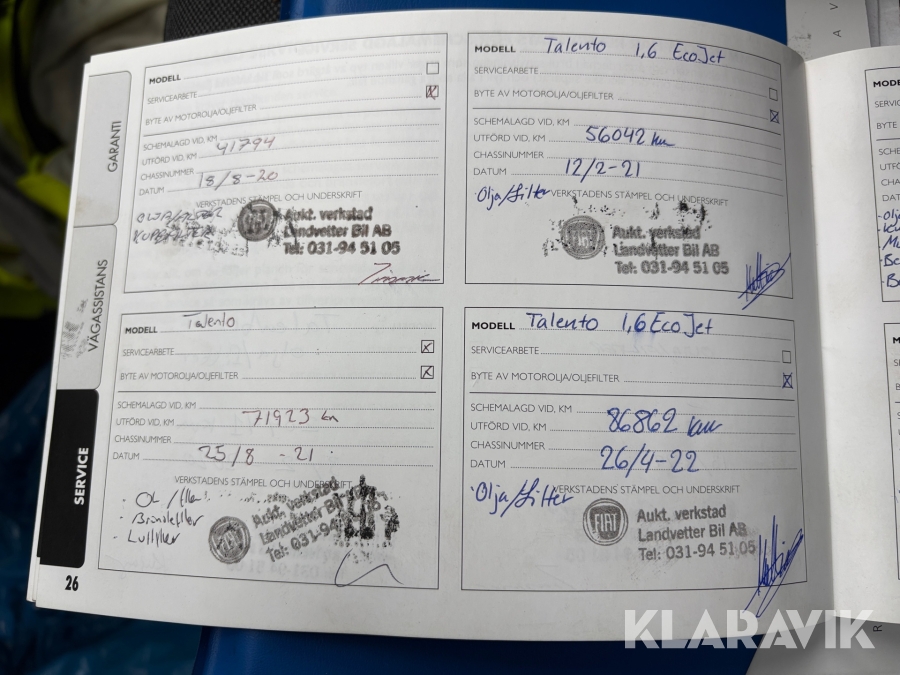 GARANTI
VÄGASSISTANS
SERVICE
26
MODELL
SERVICEARBETE
BYTE AV MOTOROLJA/OLJEFILTER
SCHEMALAGD VID, KM
UTFÖRD VID, KM 41794
CHASSINUMMER
DATUM 18/8-20
VERKSTADENS STÄMPEL OCH UNDERSKRIFT
FIAT
Aukt. verkstad
Landvetter Bil AB
Tel: 031-94 51 05
MODELL Talento 1,6 EcoJet
SERVICEARBETE
BYTE AV MOTOROLJA/OLJEFILTER
SCHEMALAGD VID, KM
UTFÖRD VID, KM 56042 km
CHASSINUMMER
DATUM 12/2-21
VERKSTADENS STÄMPEL OCH UNDERSKRIFT
Olja/filter
FIAT
Aukt. verkstad
Landvetter Bil AB
Tel: 031-94 51 05
MODELL Talento
SERVICEARBETE
BYTE AV MOTOROLJA/OLJEFILTER
SCHEMALAGD VID, KM
UTFÖRD VID, KM 71923 km
CHASSINUMMER
DATUM 25/8 -21
VERKSTADENS STÄMPEL OCH UNDERSKRIFT
FIAT
Aukt. verkstad
Landvetter Bil
Tel: 031-94
MODELL Talento 1,6 EcoJet
SERVICEARBETE
BYTE AV MOTOROLJA/OLJEFILTER
SCHEMALAGD VID, KM
UTFÖRD VID, KM 86862 km
CHASSINUMMER
DATUM 26/4-22
VERKSTADENS STÄMPEL OCH UNDERSKRIFT
Olja/filter
FIAT
Aukt. verkstad
Landvetter Bil AB
Tel: 031-94 51 05
KLARAVIK